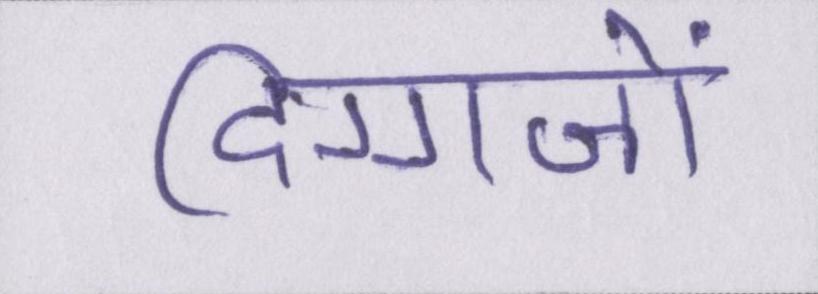 दिग्गजों